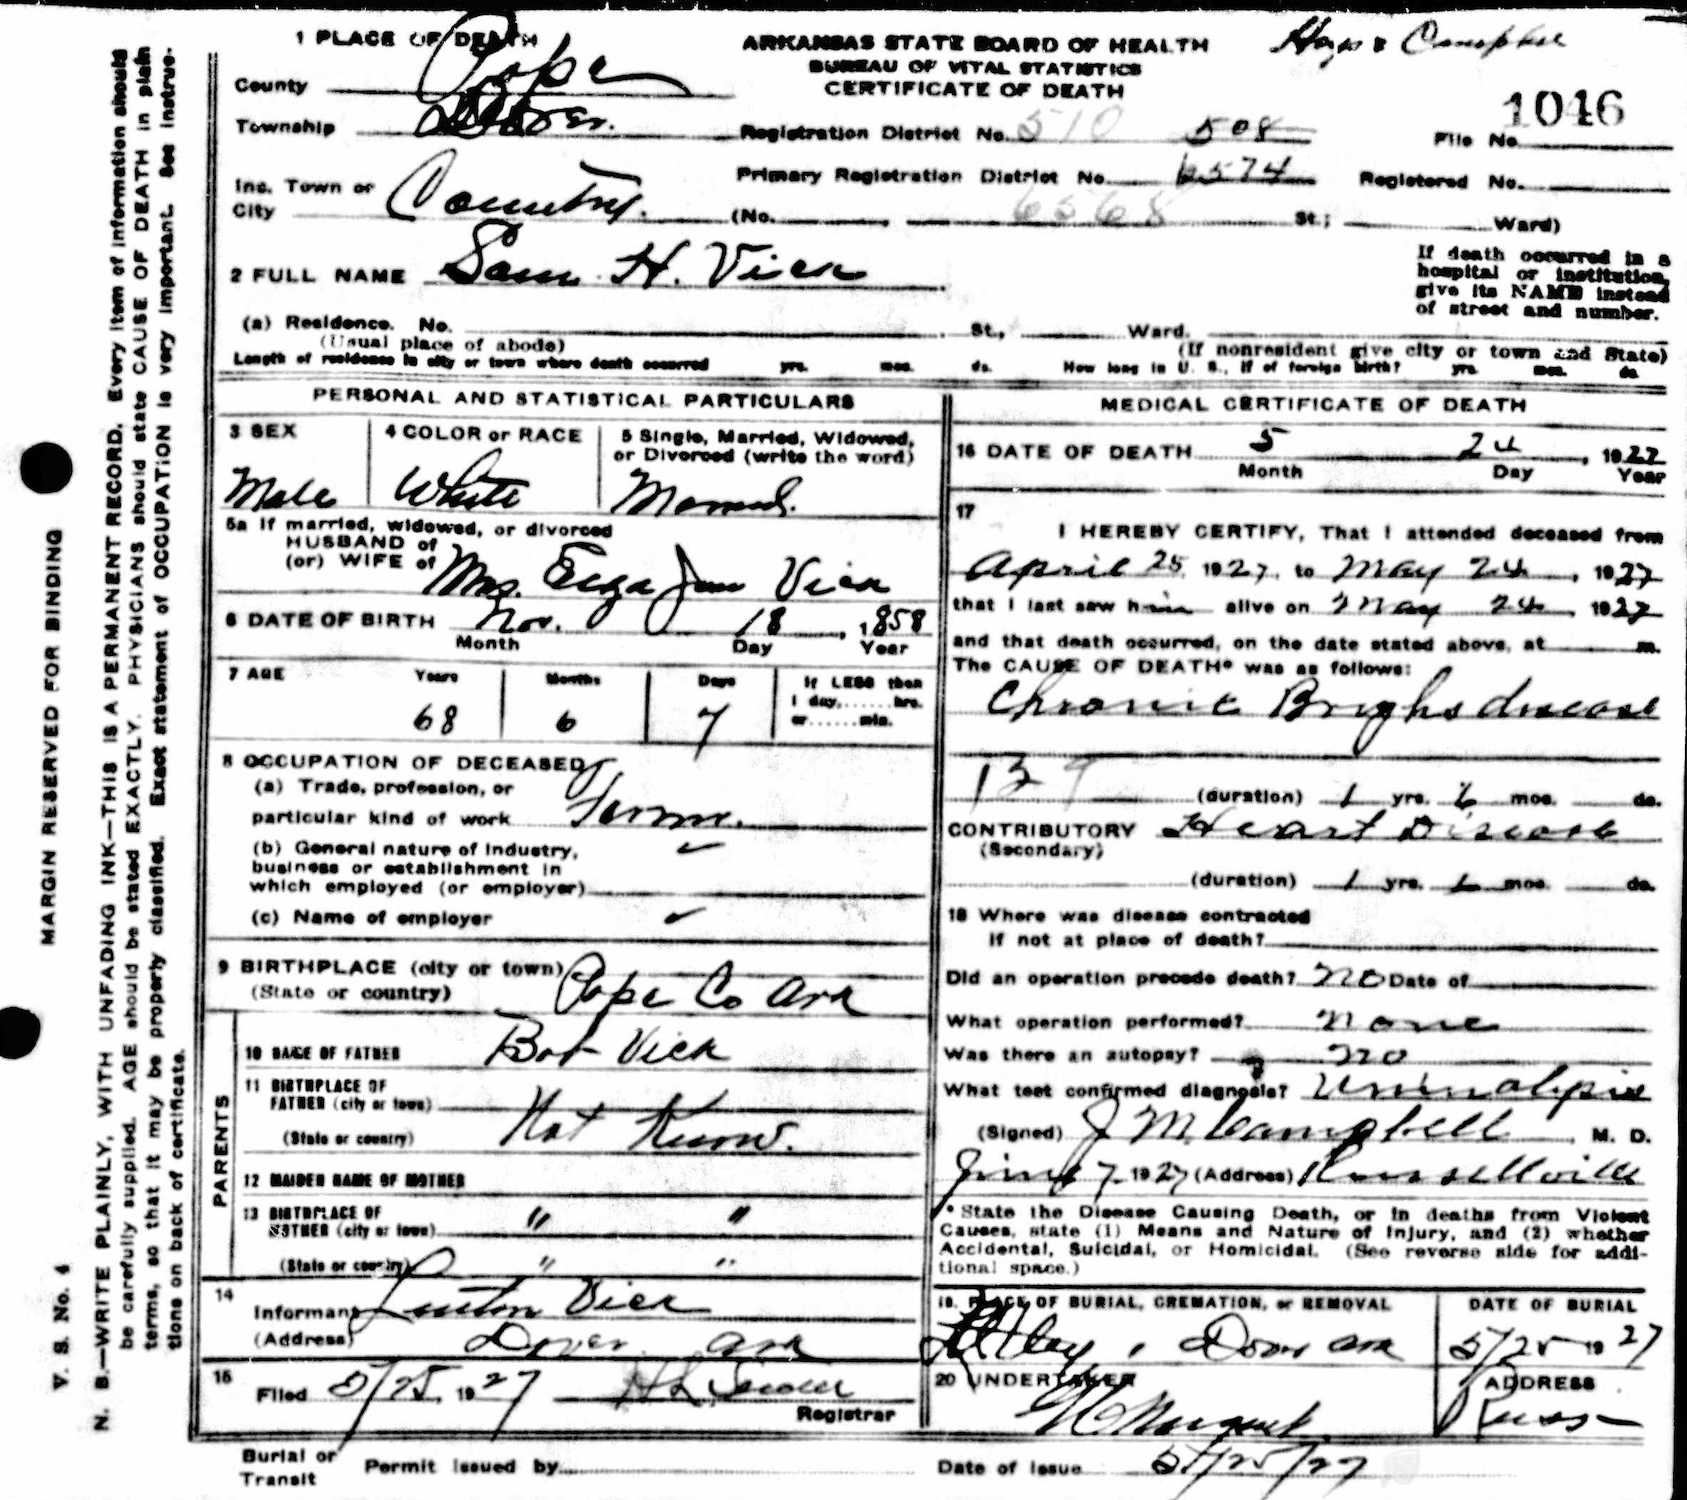 MARGIN RESERVED FOR BINDING
V. S. No. 4
N. B.—WRITE PLAINLY, WITH UNFADING INK—THIS IS A PERMANENT RECORD. Every item of information should
be carefully supplied. AGE should be stated EXACTLY. PHYSICIANS should state CAUSE OF DEATH in plain
terms, so that it may be properly classified. Exact statement of OCCUPATION is very important. See instruc-
tions on back of certificate.
1 PLACE OF DEATH
County Pope
Township Dover.
Inc. Town or
City Country.
ARKANSAS STATE BOARD OF HEALTH
BUREAU OF VITAL STATISTICS
CERTIFICATE OF DEATH
Hays & Campbell
Registration District No. 510 508
File No. 1046
Primary Registration District No. 6574
Registered No.
(No. 6568 St.; Ward)
2 FULL NAME Sam H. Vick
If death occurred in a
hospital or institution,
give its NAME instead
of street and number.
(a) Residence. No. St., Ward.
(Usual place of abode) (If nonresident give city or town and State)
Length of residence in city or town where death occurred yrs. mos. ds. How long in U. S., if of foreign birth? yrs. mos. ds.
PERSONAL AND STATISTICAL PARTICULARS
3 SEX
Male
4 COLOR or RACE
White
5 Single, Married, Widowed,
or Divorced (write the word)
Married.
5a If married, widowed, or divorced
HUSBAND of
(or) WIFE of Mrs. Vick
6 DATE OF BIRTH Nov. 18, 1858
Month Day Year
7 AGE Years Months Days If LESS than
1 day,......hrs.
or......min.
68 6 7
8 OCCUPATION OF DECEASED
(a) Trade, profession, or
particular kind of work Farmer.
(b) General nature of Industry,
business or establishment in
which employed (or employer) ✓
(c) Name of employer ✓
9 BIRTHPLACE (city or town)
(State or country) Pope Co Ark
PARENTS
10 NAME OF FATHER Bob Vick
11 BIRTHPLACE OF
FATHER (city or town)
(State or country) Not Know.
12 MAIDEN NAME OF MOTHER
13 BIRTHPLACE OF
MOTHER (city or town) " "
(State or country) " "
14
Informant Luxton Vick
(Address) Dover Ark
15
Filed 5/25, 1927
Registrar
MEDICAL CERTIFICATE OF DEATH
16 DATE OF DEATH 5 24, 1927
Month Day Year
17
I HEREBY CERTIFY, That I attended deceased from
April 25, 1927, to May 24, 1927
that I last saw him alive on May 24, 1927
and that death occurred, on the date stated above, at m.
The CAUSE OF DEATH* was as follows:
Chronic Brighs disease
129
(duration) 1 yrs. 6 mos. ds.
CONTRIBUTORY Heart Disease
(Secondary)
(duration) 1 yrs. mos. ds.
18 Where was disease contracted
if not at place of death?
Did an operation precede death? no Date of
What operation performed? none
Was there an autopsy? no
What test confirmed diagnosis?
(Signed) J M Campbell, M. D.
June 7, 1927 (Address) Russellville
*State the Disease Causing Death, or in deaths from Violent
Causes, state (1) Means and Nature of Injury, and (2) whether
Accidental, Suicidal, or Homicidal. (See reverse side for addi-
tional space.)
19. PLACE OF BURIAL, CREMATION, or REMOVAL
Dover Ark
DATE OF BURIAL
5/25 1927
20 UNDERTAKER
ADDRESS
Russ
Burial or
Transit Permit issued by
Date of Issue 5/25/27